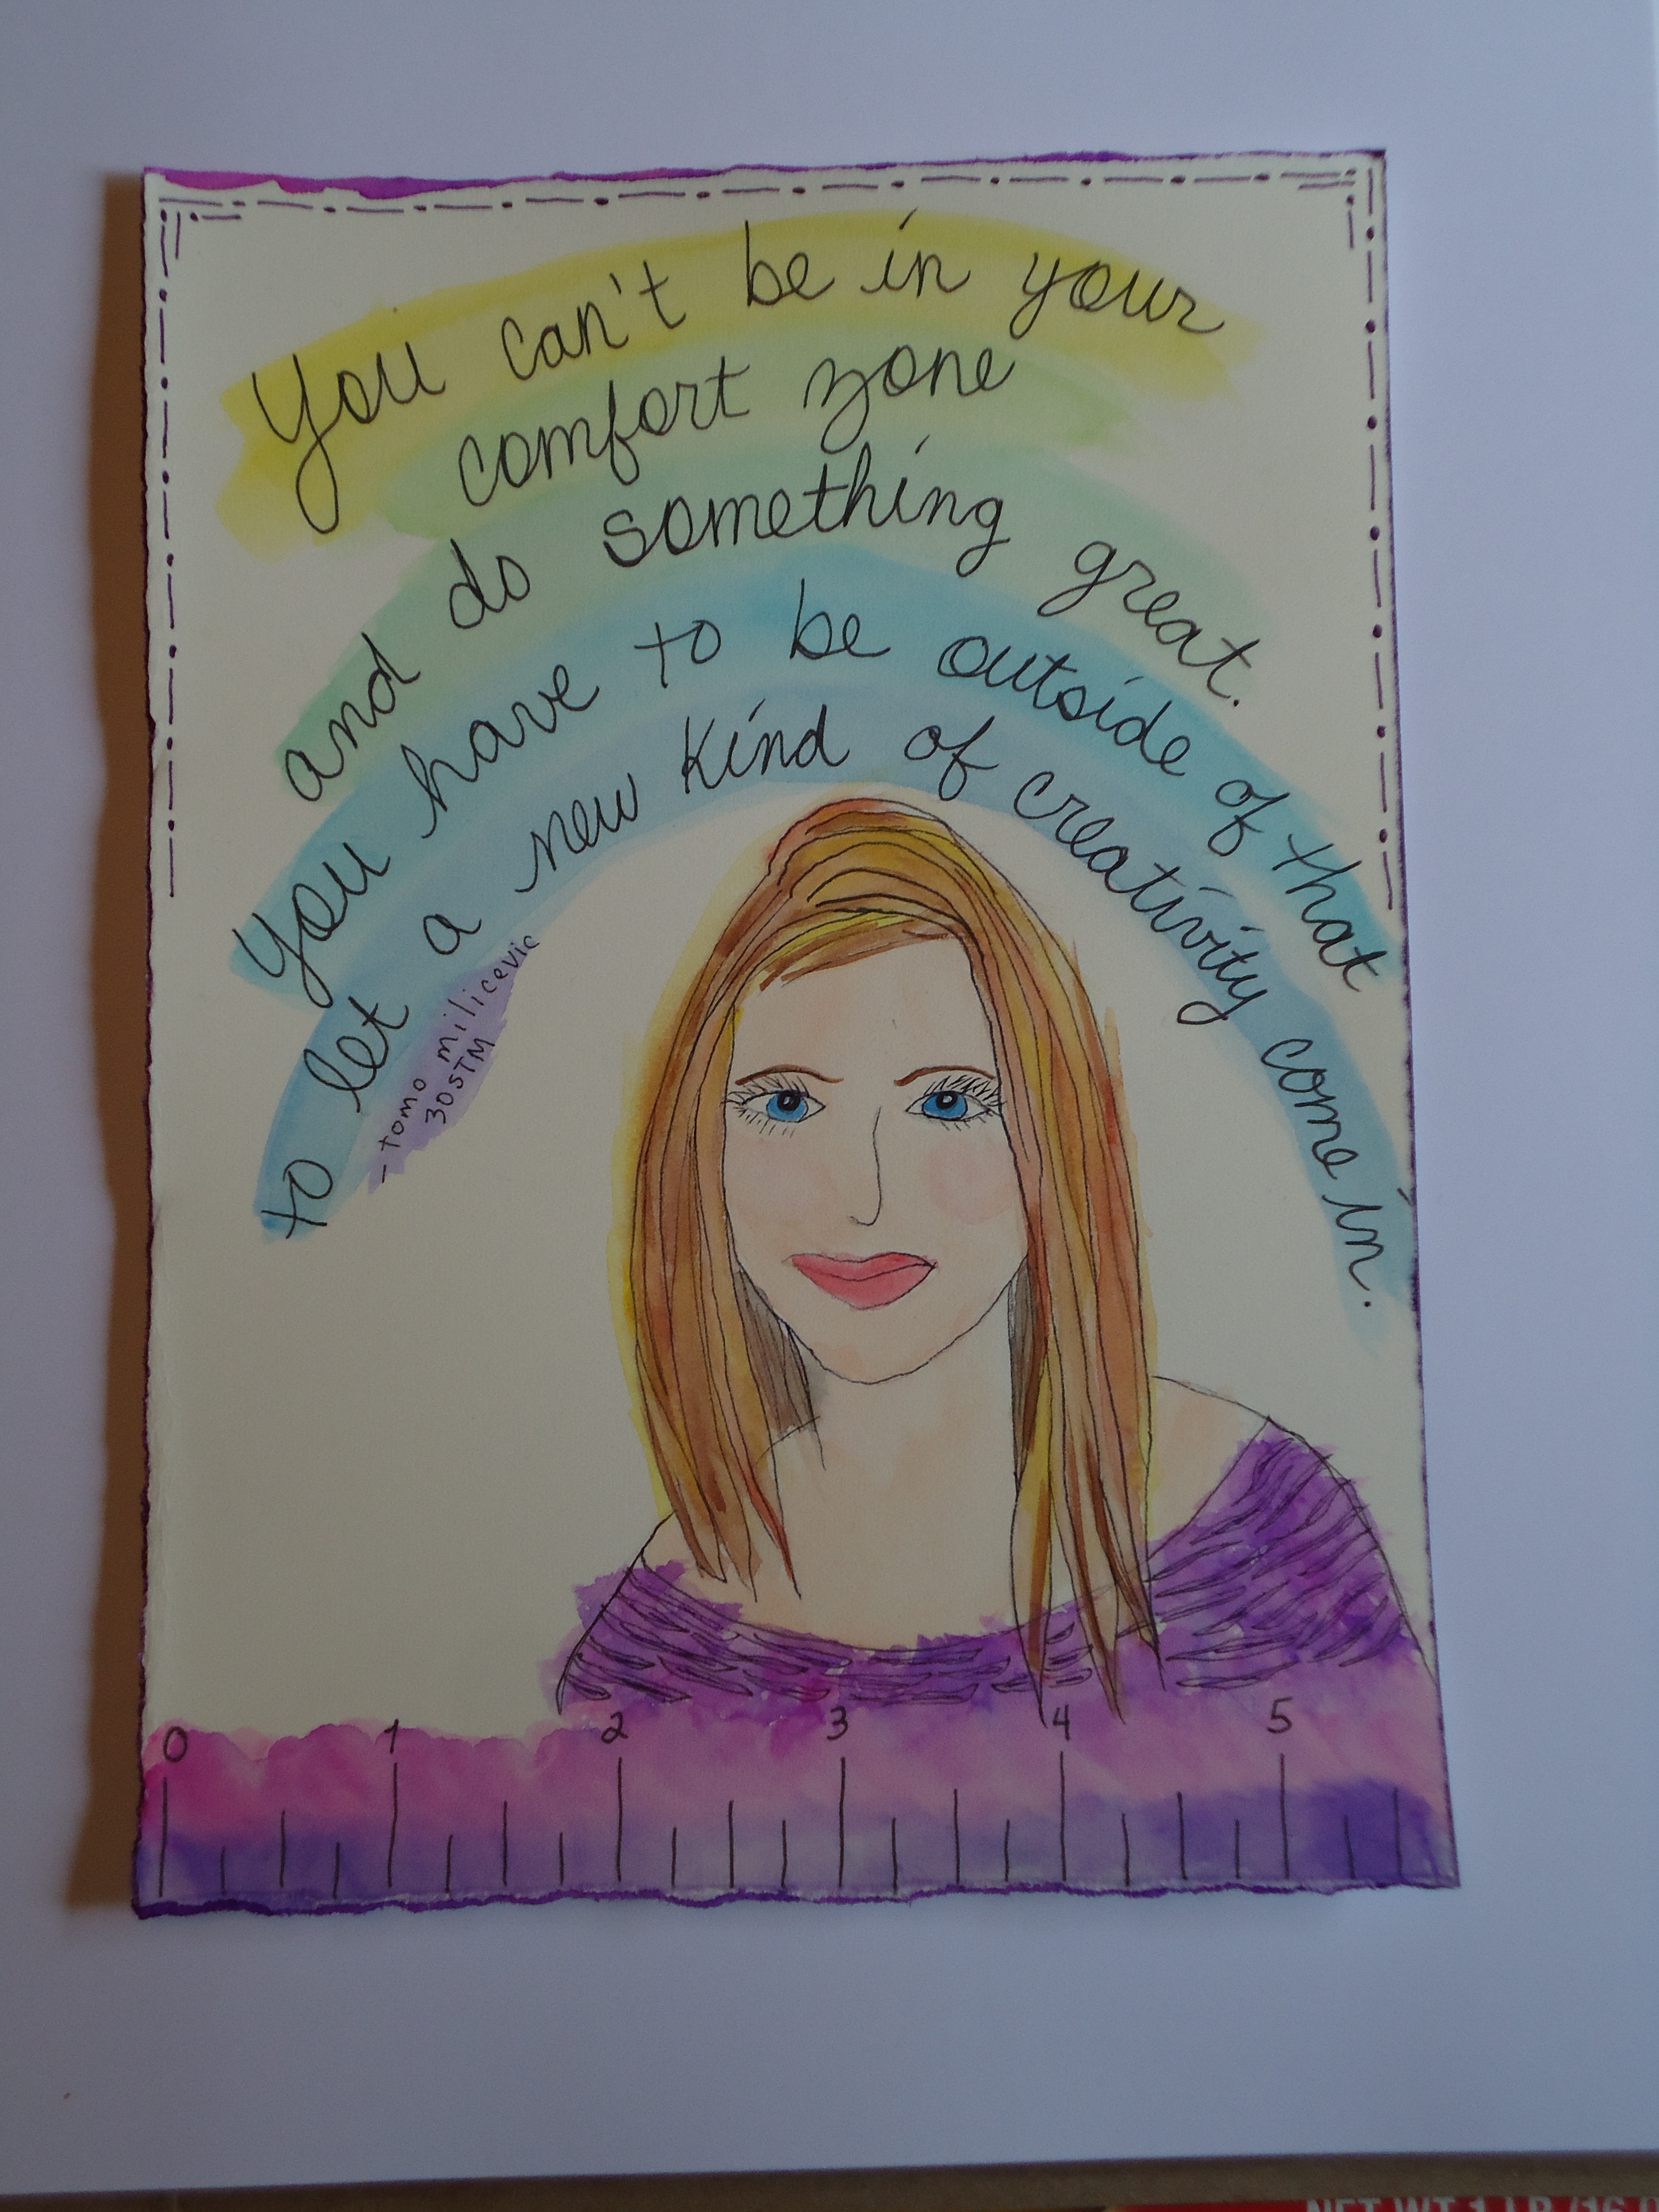 You can't be in your
comfort zone
and do something great.
You have to be outside of that
to let a new kind of creativity come in.
- tomo milicevic
30STM
0 1 2 3 4 5
NET WT 1 LB (16 O